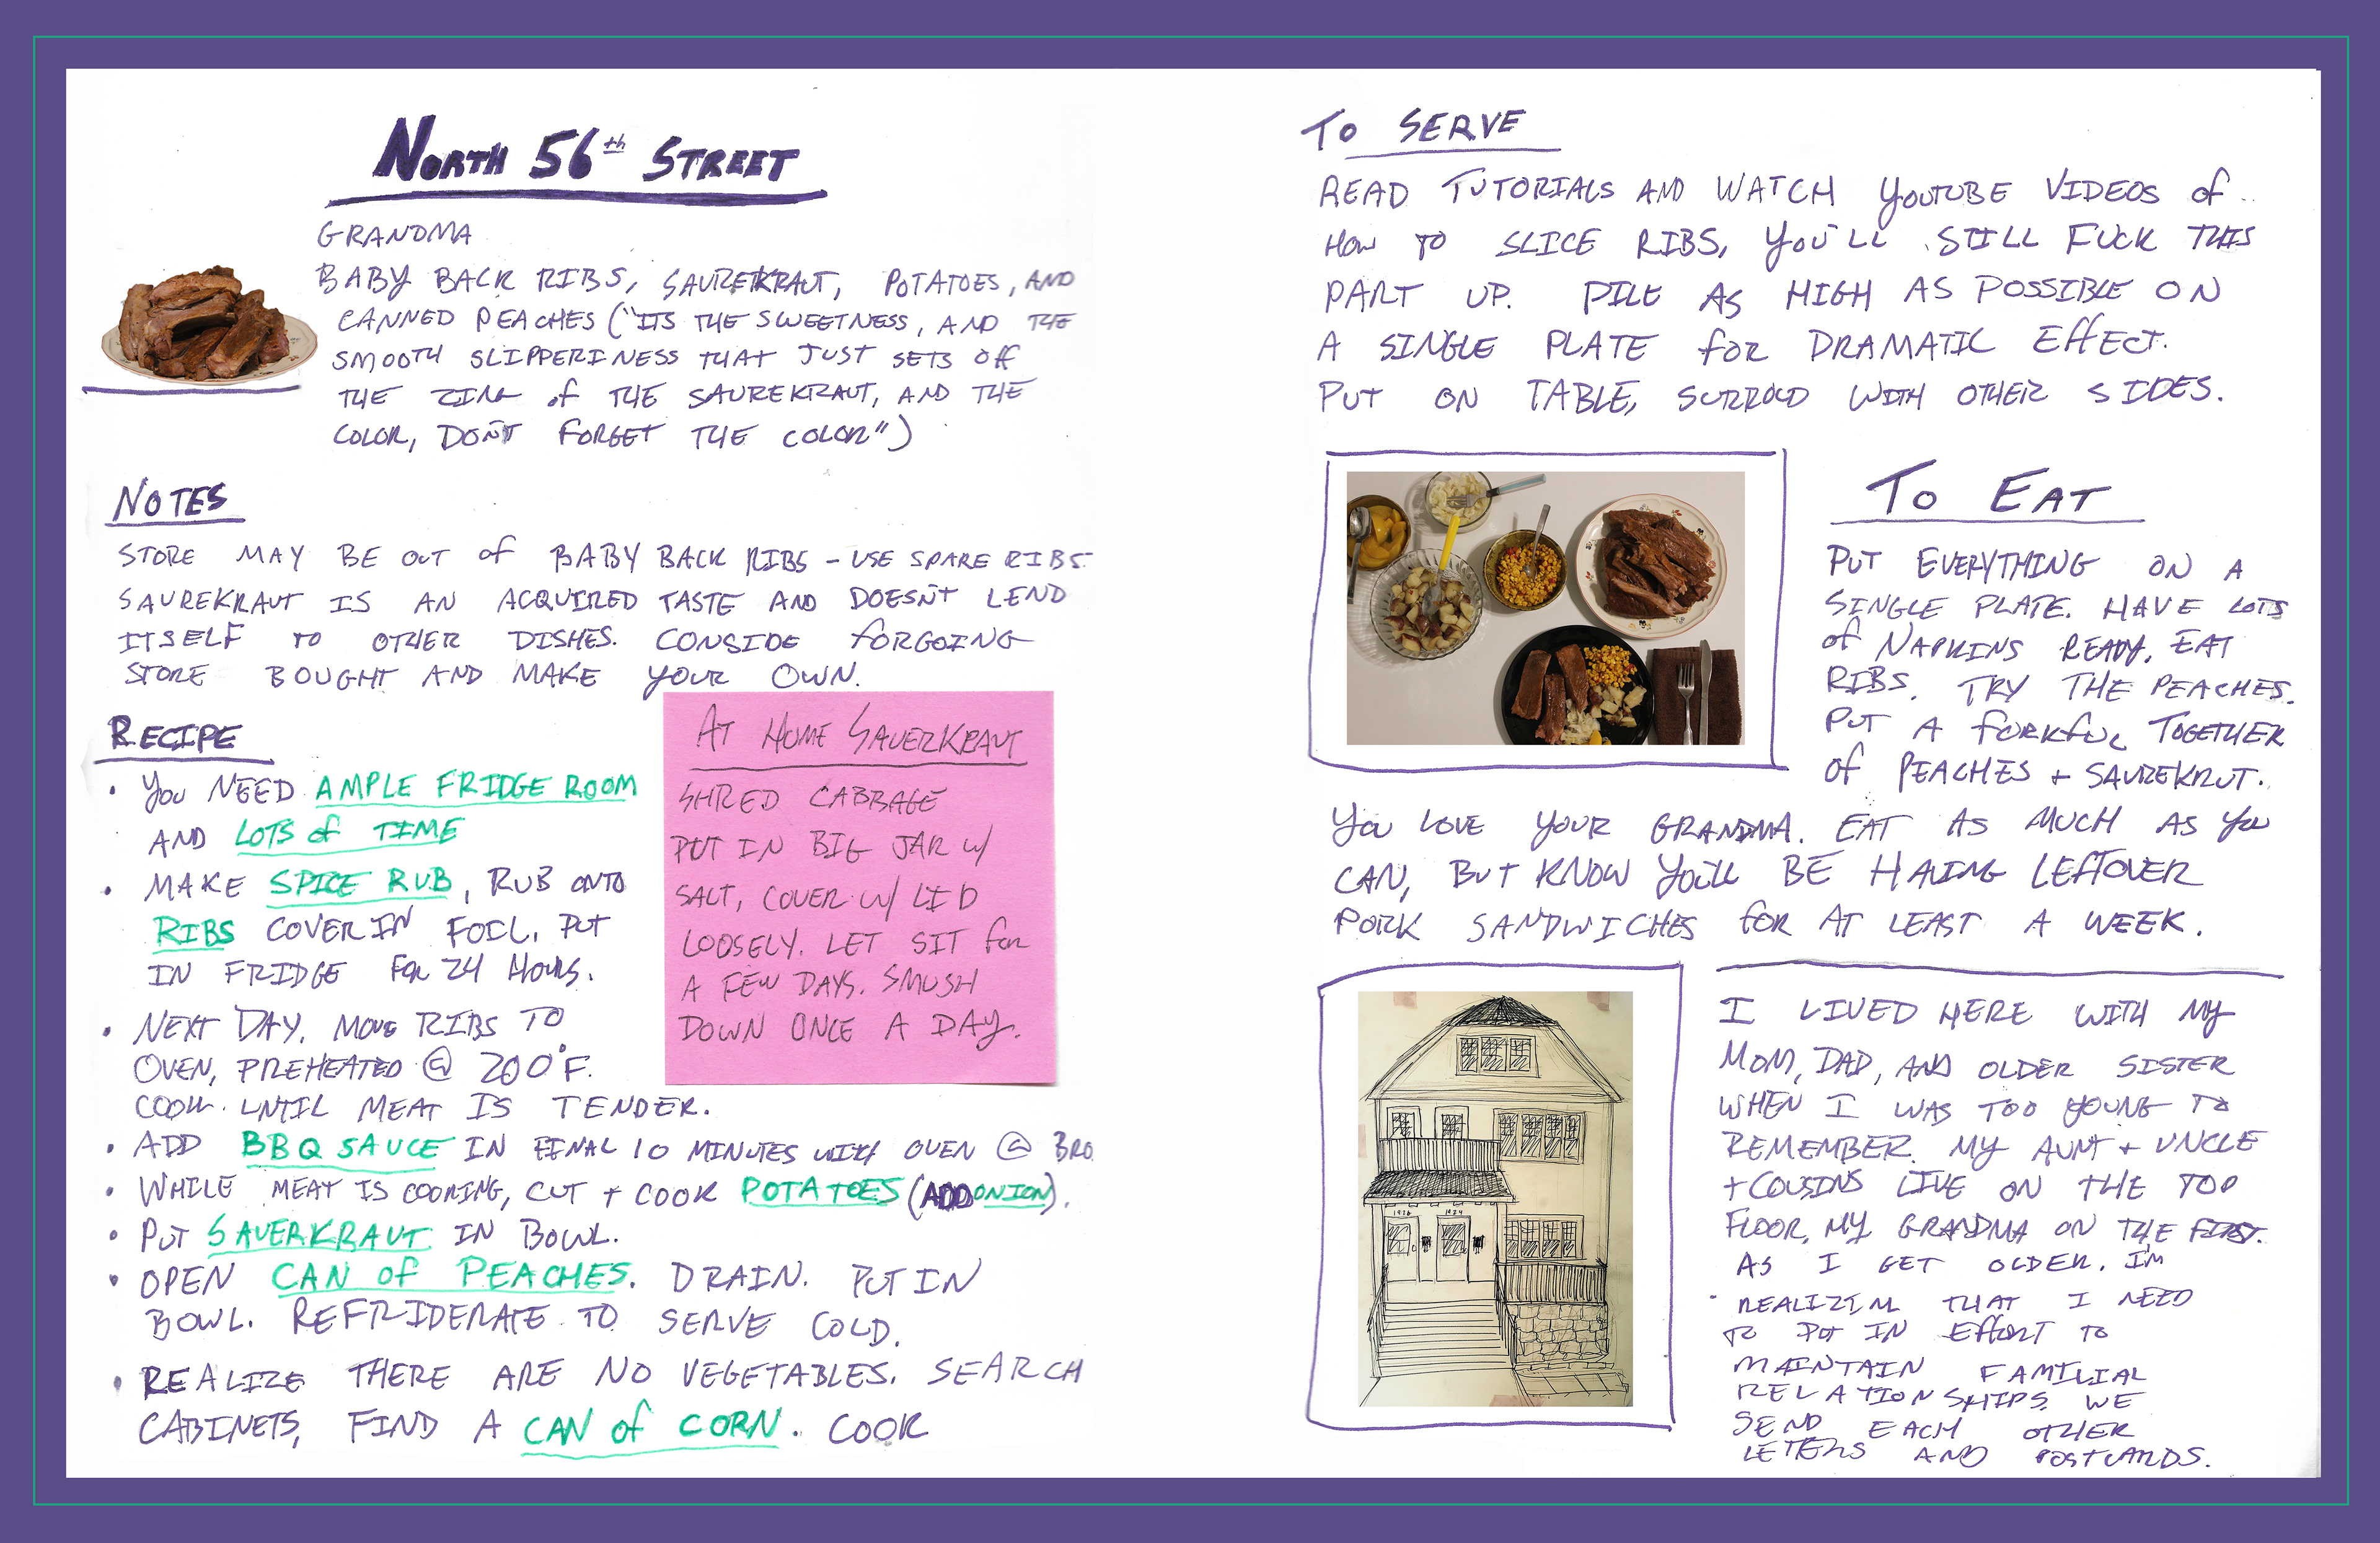 NORTH 56th STREET
GRANDMA
BABY BACK RIBS, SAUREKRAUT, POTATOES, AND
CANNED PEACHES ("ITS THE SWEETNESS, AND THE
SMOOTH SLIPPERINESS THAT JUST SETS Off
THE ZING of THE SAUREKRAUT, AND THE
COLOR, DON'T FORGET THE COLOR")
NOTES
STORE MAY BE OUT of BABY BACK RIBS - USE SPARE RIBS.
SAUREKRAUT IS AN ACQUIRED TASTE AND DOESN'T LEND
ITSELF TO OTHER DISHES. CONSIDE FORGOING
STORE BOUGHT AND MAKE YOUR OWN.
RECIPE
• YOU NEED AMPLE FRIDGE ROOM
AND LOTS of TIME
• MAKE SPICE RUB, RUB ONTO
RIBS COVER IN FOIL. PUT
IN FRIDGE FOR 24 HOURS.
• NEXT DAY. MOVE RIBS TO
OVEN, PREHEATED @ 200°F.
COOK UNTIL MEAT IS TENDER.
• ADD BBQ SAUCE IN FINAL 10 MINUTES WITH OVEN @ BRO
• WHILE MEAT IS COOKING, CUT + COOK POTATOES (ADD ONION).
• PUT SAUERKRAUT IN BOWL.
• OPEN CAN of PEACHES. DRAIN. PUT IN
BOWL. REFRIDERATE TO SERVE COLD.
• REALIZE THERE ARE NO VEGETABLES. SEARCH
CABINETS, FIND A CAN of CORN. COOK
AT HOME SAUERKRAUT
SHRED CABBAGE
PUT IN BIG JAR W/
SALT, COVER W/ LID
LOOSELY. LET SIT for
A FEW DAYS. SMUSH
DOWN ONCE A DAY.
TO SERVE
READ TUTORIALS AND WATCH YOUTUBE VIDEOS of
HOW TO SLICE RIBS, YOU'LL STILL FUCK THIS
PART UP. PILE AS HIGH AS POSSIBLE ON
A SINGLE PLATE for DRAMATIC EFFECT.
PUT ON TABLE, SURROUD WITH OTHER SIDES.
TO EAT
PUT EVERYTHING ON A
SINGLE PLATE. HAVE LOTS
of NAPKINS READY. EAT
RIBS. TRY THE PEACHES.
PUT A FORKFUL TOGETHER
of PEACHES + SAUREKRUT.
YOU LOVE YOUR GRANDMA. EAT AS MUCH AS YOU
CAN, BUT KNOW YOU'LL BE HAVING LEFTOVER
PORK SANDWICHES FOR AT LEAST A WEEK.
1926 1924
I LIVED HERE WITH MY
MOM, DAD, AND OLDER SISTER
WHEN I WAS TOO YOUNG TO
REMEMBER. MY AUNT + UNCLE
+ COUSINS LIVE ON THE TOP
FLOOR, MY GRANDMA ON THE FIRST.
AS I GET OLDER, I'M
REALIZING THAT I NEED
TO PUT IN EFFORT TO
MAINTAIN FAMILIAL
RELATIONSHIPS. WE
SEND EACH OTHER
LETERS AND POSTCARDS.